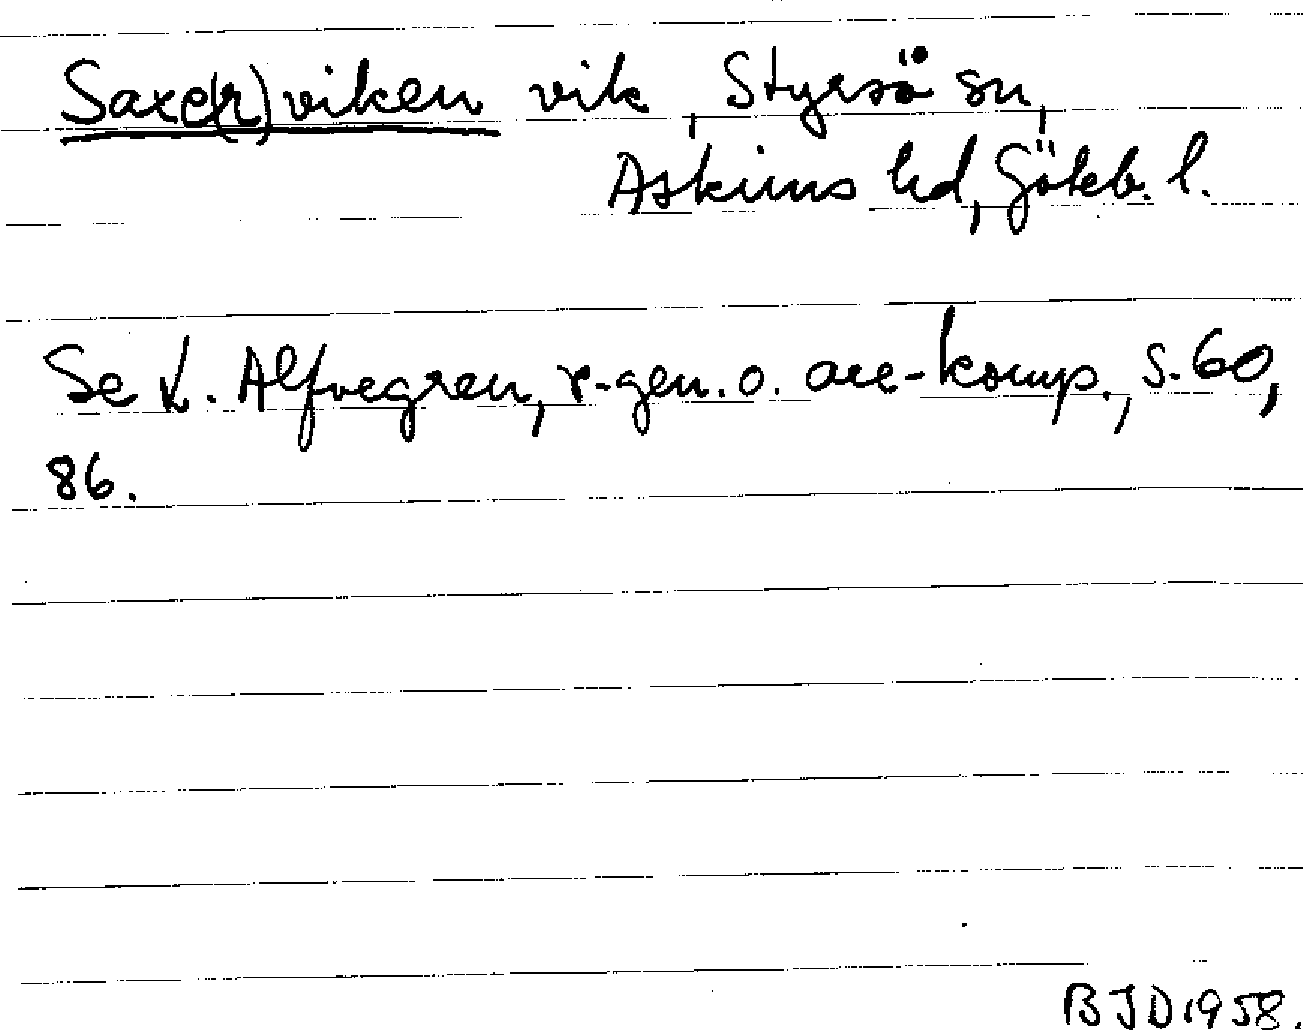 Saxe(r)viken vik, Styrsö sn,
Askims hd, Göteb. l.
Se L. Alfvegren, r-gen. o. are-komp., s. 60,
86.
BJD 1958.